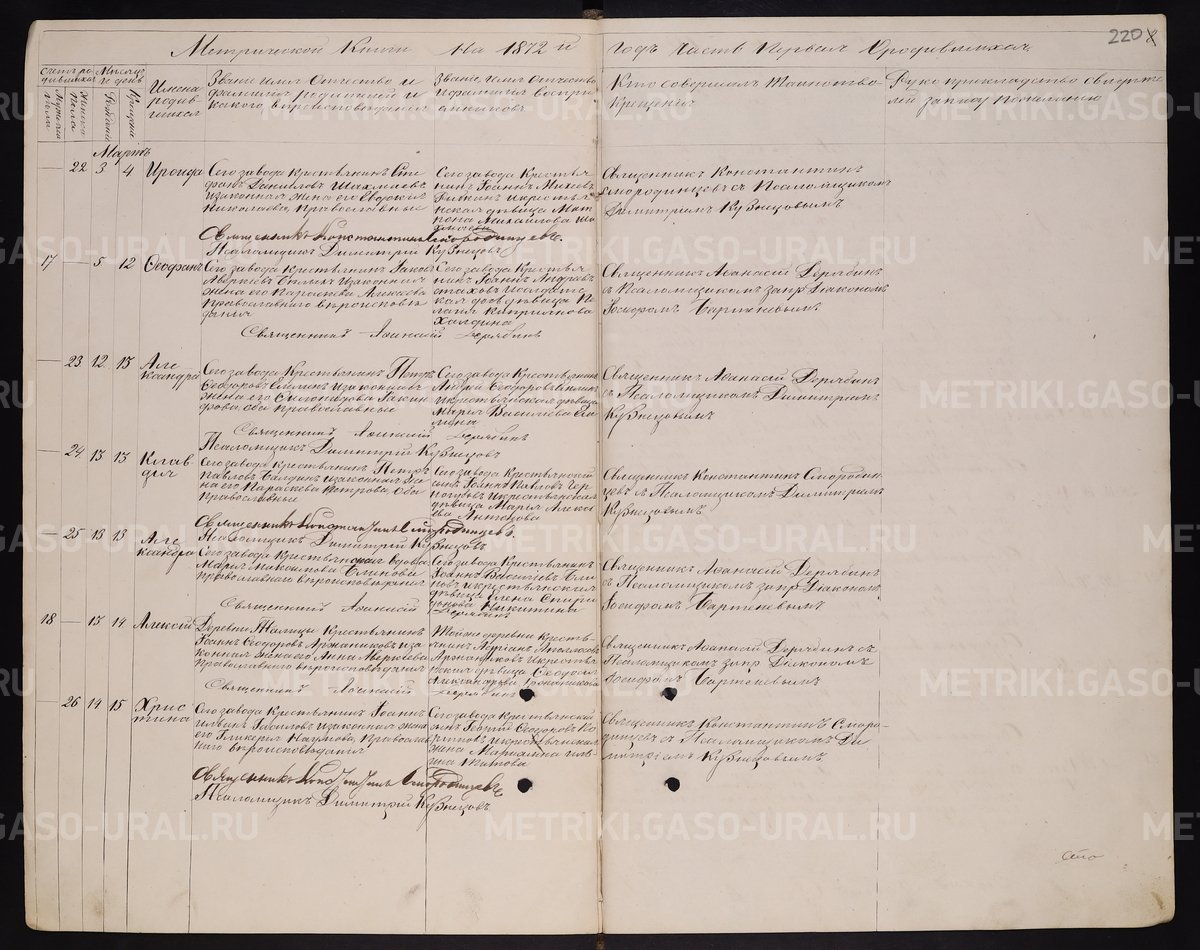 220
Метрической Книги на 1872 й годъ часть Первая О родившихся
Счетъ ро
дившихся
Мужеска
пола
Женска
пола
Мѣсяцъ
и день
Рожденія
Крещенія
Имена
родив
шихся
Званіе имя Отчество и
фамилія родителей и
какого вѣроисповѣданія
Званіе, имя Отчество
и фамилія воспрі
емниковъ
Кто совершалъ Таинство
Крещенія
Рукоприкладство свидѣте
лей записи по желанію
Мартъ
22 3 4 Ироида
Сего завода крестьянинъ Сте
фанъ Даниловъ
законная жена его Евдокія
Николаева, Православные
Сего завода Крестья
нинъ Іоаннъ Михеевъ
и крестья
нская дѣвица Мат
рона Михаилова
Священникъ Константинъ
Смородинцевъ съ Псаломщикомъ
Димитріемъ Кузнецовымъ
Священникъ Константинъ Смородинцевъ.
Псаломщикъ Димитрій Кузнецовъ
17 5 12 Ѳеофанъ
Сего завода крестьянинъ Іаковъ
Аверкіевъ и законная
жена его Параскева Алексѣева
Православнаго вѣроисповѣ
данія
Сего завода Крестья
нинъ Іоаннъ Андреевъ
кая дѣвица Пе
лагія Кипріянова
Халдина
Священникъ Аѳанасій Дерябинъ
съ Псаломщикомъ запр Діакономъ
Іосифомъ Бартеневымъ.
Священникъ Аѳанасій Дерябинъ
23 12 13 Але
ксандра
Сего завода Крестьянинъ Петръ
Ѳеодоровъ и законная
жена его
оба православные
Сего завода Крестьянинъ
Андрей Ѳеодоровъ
и крестьянская дѣвица
Марія Васильева
Священникъ Аѳанасій Дерябинъ
съ Псаломщикомъ Димитріемъ
Кузнецовымъ
Священникъ Аѳанасій Дерябинъ
Псаломщикъ Димитрій Кузнецовъ
24 13 13 Клав
дія
Сего завода крестьянинъ Петръ
Павловъ законная же
на его Параскева Петрова, Оба
Православные
Сего завода Крестьянскій
сынъ Іоаннъ Павловъ
и крестьянская
дѣвица Марія Алексѣ
ева Антонова
Священникъ Константинъ Смородин
цевъ съ Псаломщикомъ Димитріемъ
Кузнецовымъ
Священникъ Константинъ Смородинцевъ.
Псаломщикъ Димитрій Кузнецовъ
25 13 13 Але
ксандра
Сего завода Крестьянская вдова
Марія Максимова Блинова
православнаго вѣроисповѣданія
Сего завода Крестьянинъ
Іоаннъ Васильевъ Бли
новъ и крестьянская
дѣвица Елена Спири
донова Никитина
Священникъ Аѳанасій Дерябинъ
съ Псаломщикомъ запр Діакономъ
Іосифомъ Бартеневымъ
Священникъ Аѳанасій Дерябинъ
18 13 14 Алексій
Деревни Талицы Крестьянинъ
Іоаннъ Ѳеодоровъ Аржанниковъ и за
конная жена его Анна Аверкіева
Православнаго вѣроисповѣданія
Той же деревни кресть-
янинъ Адріанъ
Аржанниковъ и крестья
нская дѣвица Ѳеодосія
Александрова
Священникъ Аѳанасій Дерябинъ съ
Псаломщикомъ запр Діакономъ
Іосифомъ Бартеневымъ
Священникъ Аѳанасій Дерябинъ
26 14 15 Хрис
тина
Сего завода Крестьянинъ Іоаннъ
и законная жена
его Гликерія Наумова, Православ
наго вѣроисповѣданія
Сего завода Крестьянскій
сынъ Георгій Ѳеодоровъ
и крестьянская
жена Маріамна
Священникъ Константинъ Сморо-
динцевъ съ Псаломщикомъ Ди
митріемъ Кузнецовымъ
Священникъ Константинъ Смородинцевъ
Псаломщикъ Димитрій Кузнецовъ.
METRIKI.GASO-URAL.RU